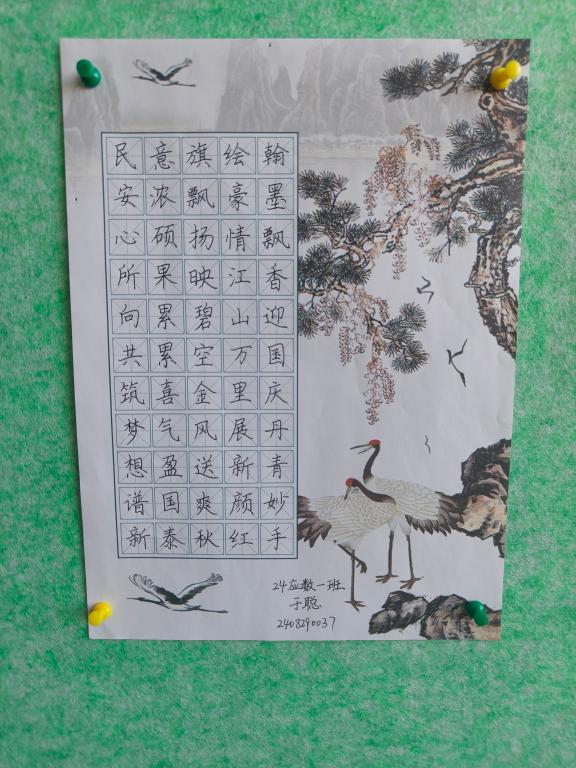 翰墨飘香迎国庆丹青妙手
绘豪情江山万里展新颜红
旗飘扬映碧空金风送爽秋
意浓硕果累累喜气盈国泰
民安心所向共筑梦想谱新
24应数一班
于聪
2408290037